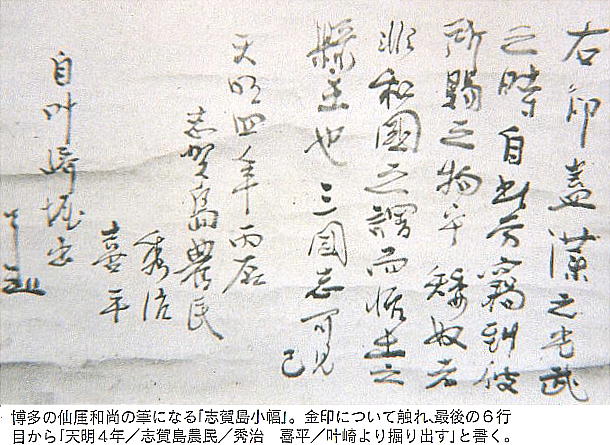 右印蓋漢之光武
之時自此方竊到彼
所賜之物乎 矮奴者
非和國之謂而怡土之
縣主也 三國志可見 已
天明四年丙辰
志賀島農民
秀治
喜平
自叶崎堀出
博多の仙厓和尚の筆になる「志賀島小幅」。金印について触れ、最後の6行
目から「天明4年/志賀島農民/秀治　喜平/叶崎より掘り出す」と書く。